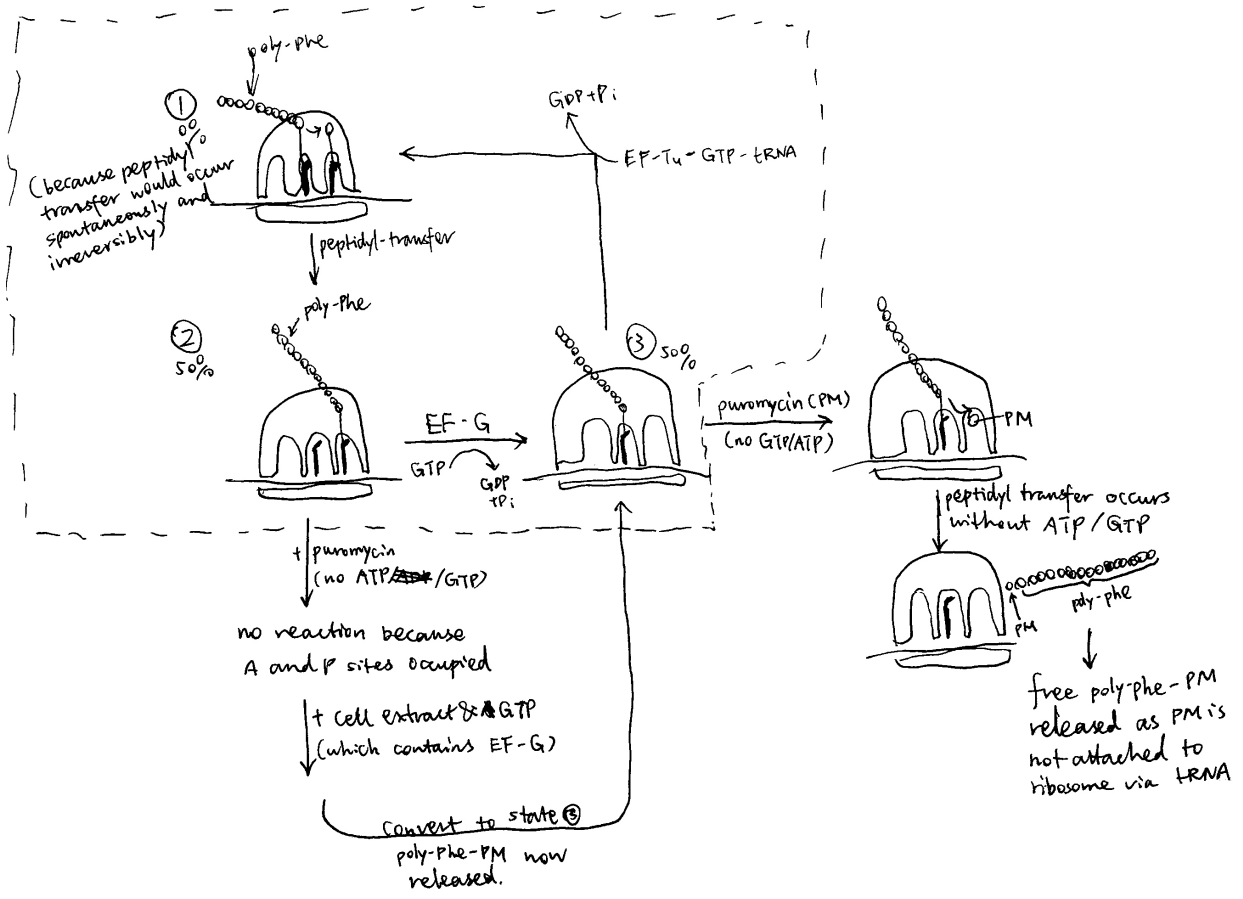 poly-phe
①
0%
(because peptidyl
transfer would occur
spontaneously and
irreversibly)
GDP+Pi
EF-Tu-GTP-tRNA
peptidyl-transfer
poly-Phe
②
50%
③ 50%
EF-G
GTP
GDP
+Pi
puromycin (PM)
(no GTP/ATP)
PM
peptidyl transfer occurs
without ATP/GTP
poly-phe
PM
free poly-phe-PM
released as PM is
not attached to
ribosome via tRNA
+ puromycin
(no ATP/GTP)
no reaction because
A and P sites occupied
+ cell extract & GTP
(which contains EF-G)
convert to state ③
poly-Phe-PM now
released.